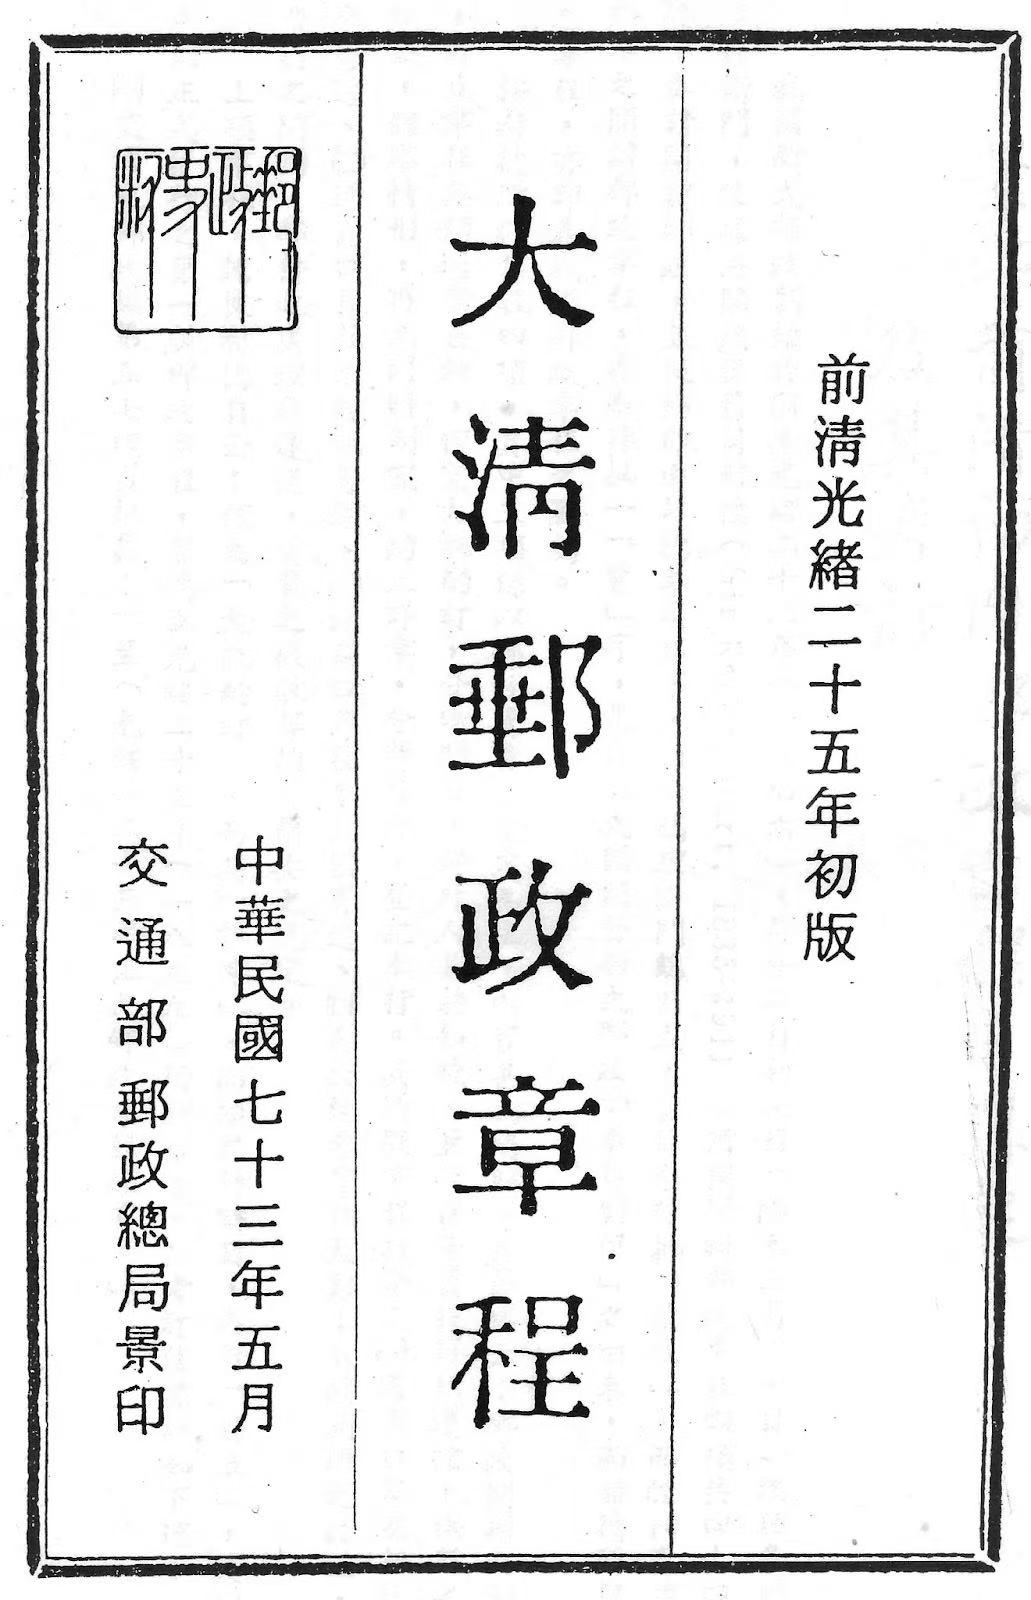 前清光緒二十五年初版
大清郵政章程
中華民國七十三年五月
交通部郵政總局景印
郵政史料